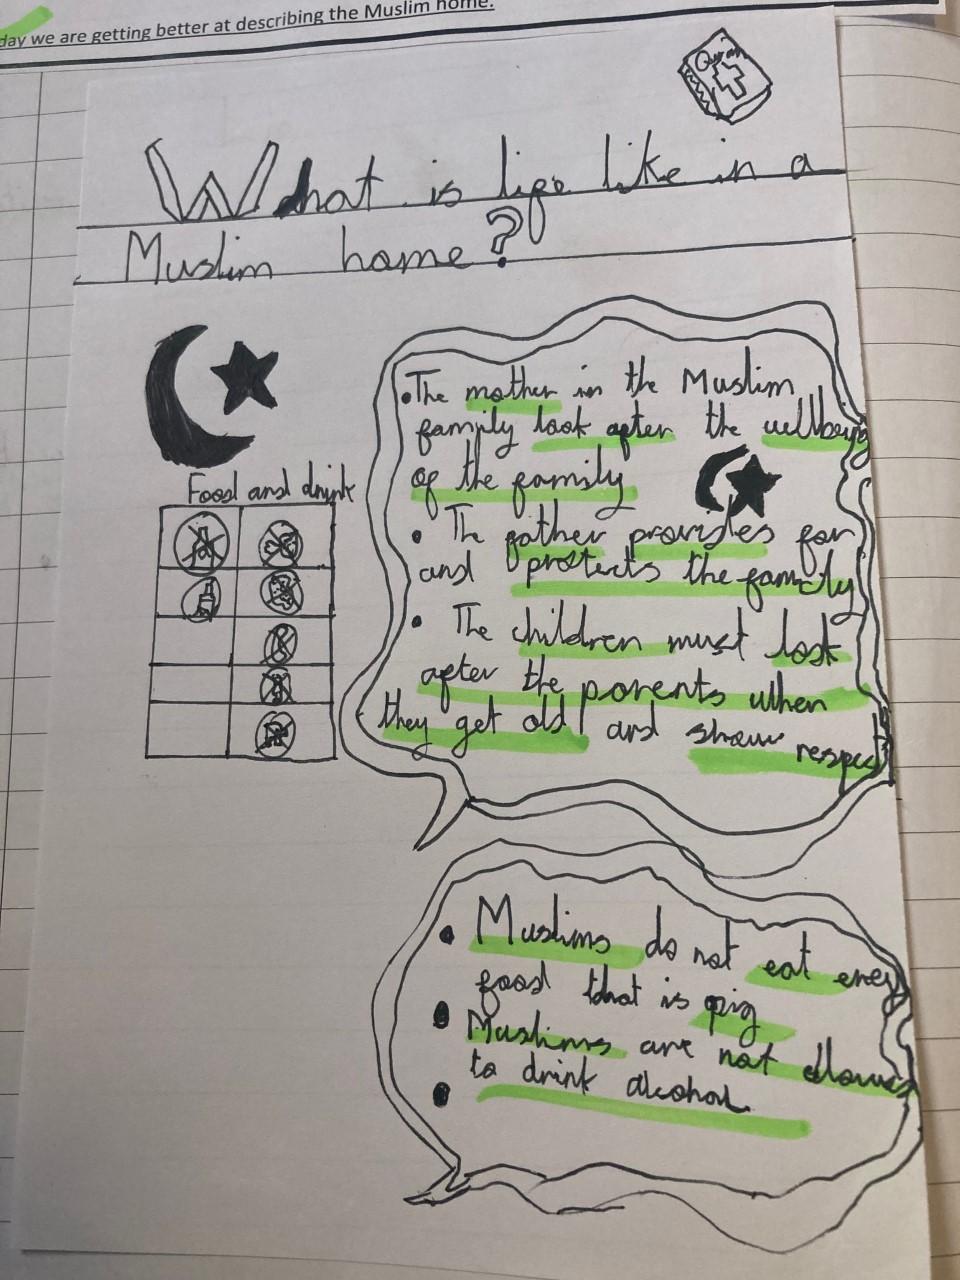 day we are getting better at describing the Muslim home.
Quran
What is life like in a
Muslim home?
Food and drink
•The mother in the Muslim
family look after the wellbeing
of the family
• The father provides for
and protects the family
• The children must look
after the parents when
they get old and show respect
• Muslims do not eat eney
food that is pig
• Muslims are not allowed
• to drink alcohol